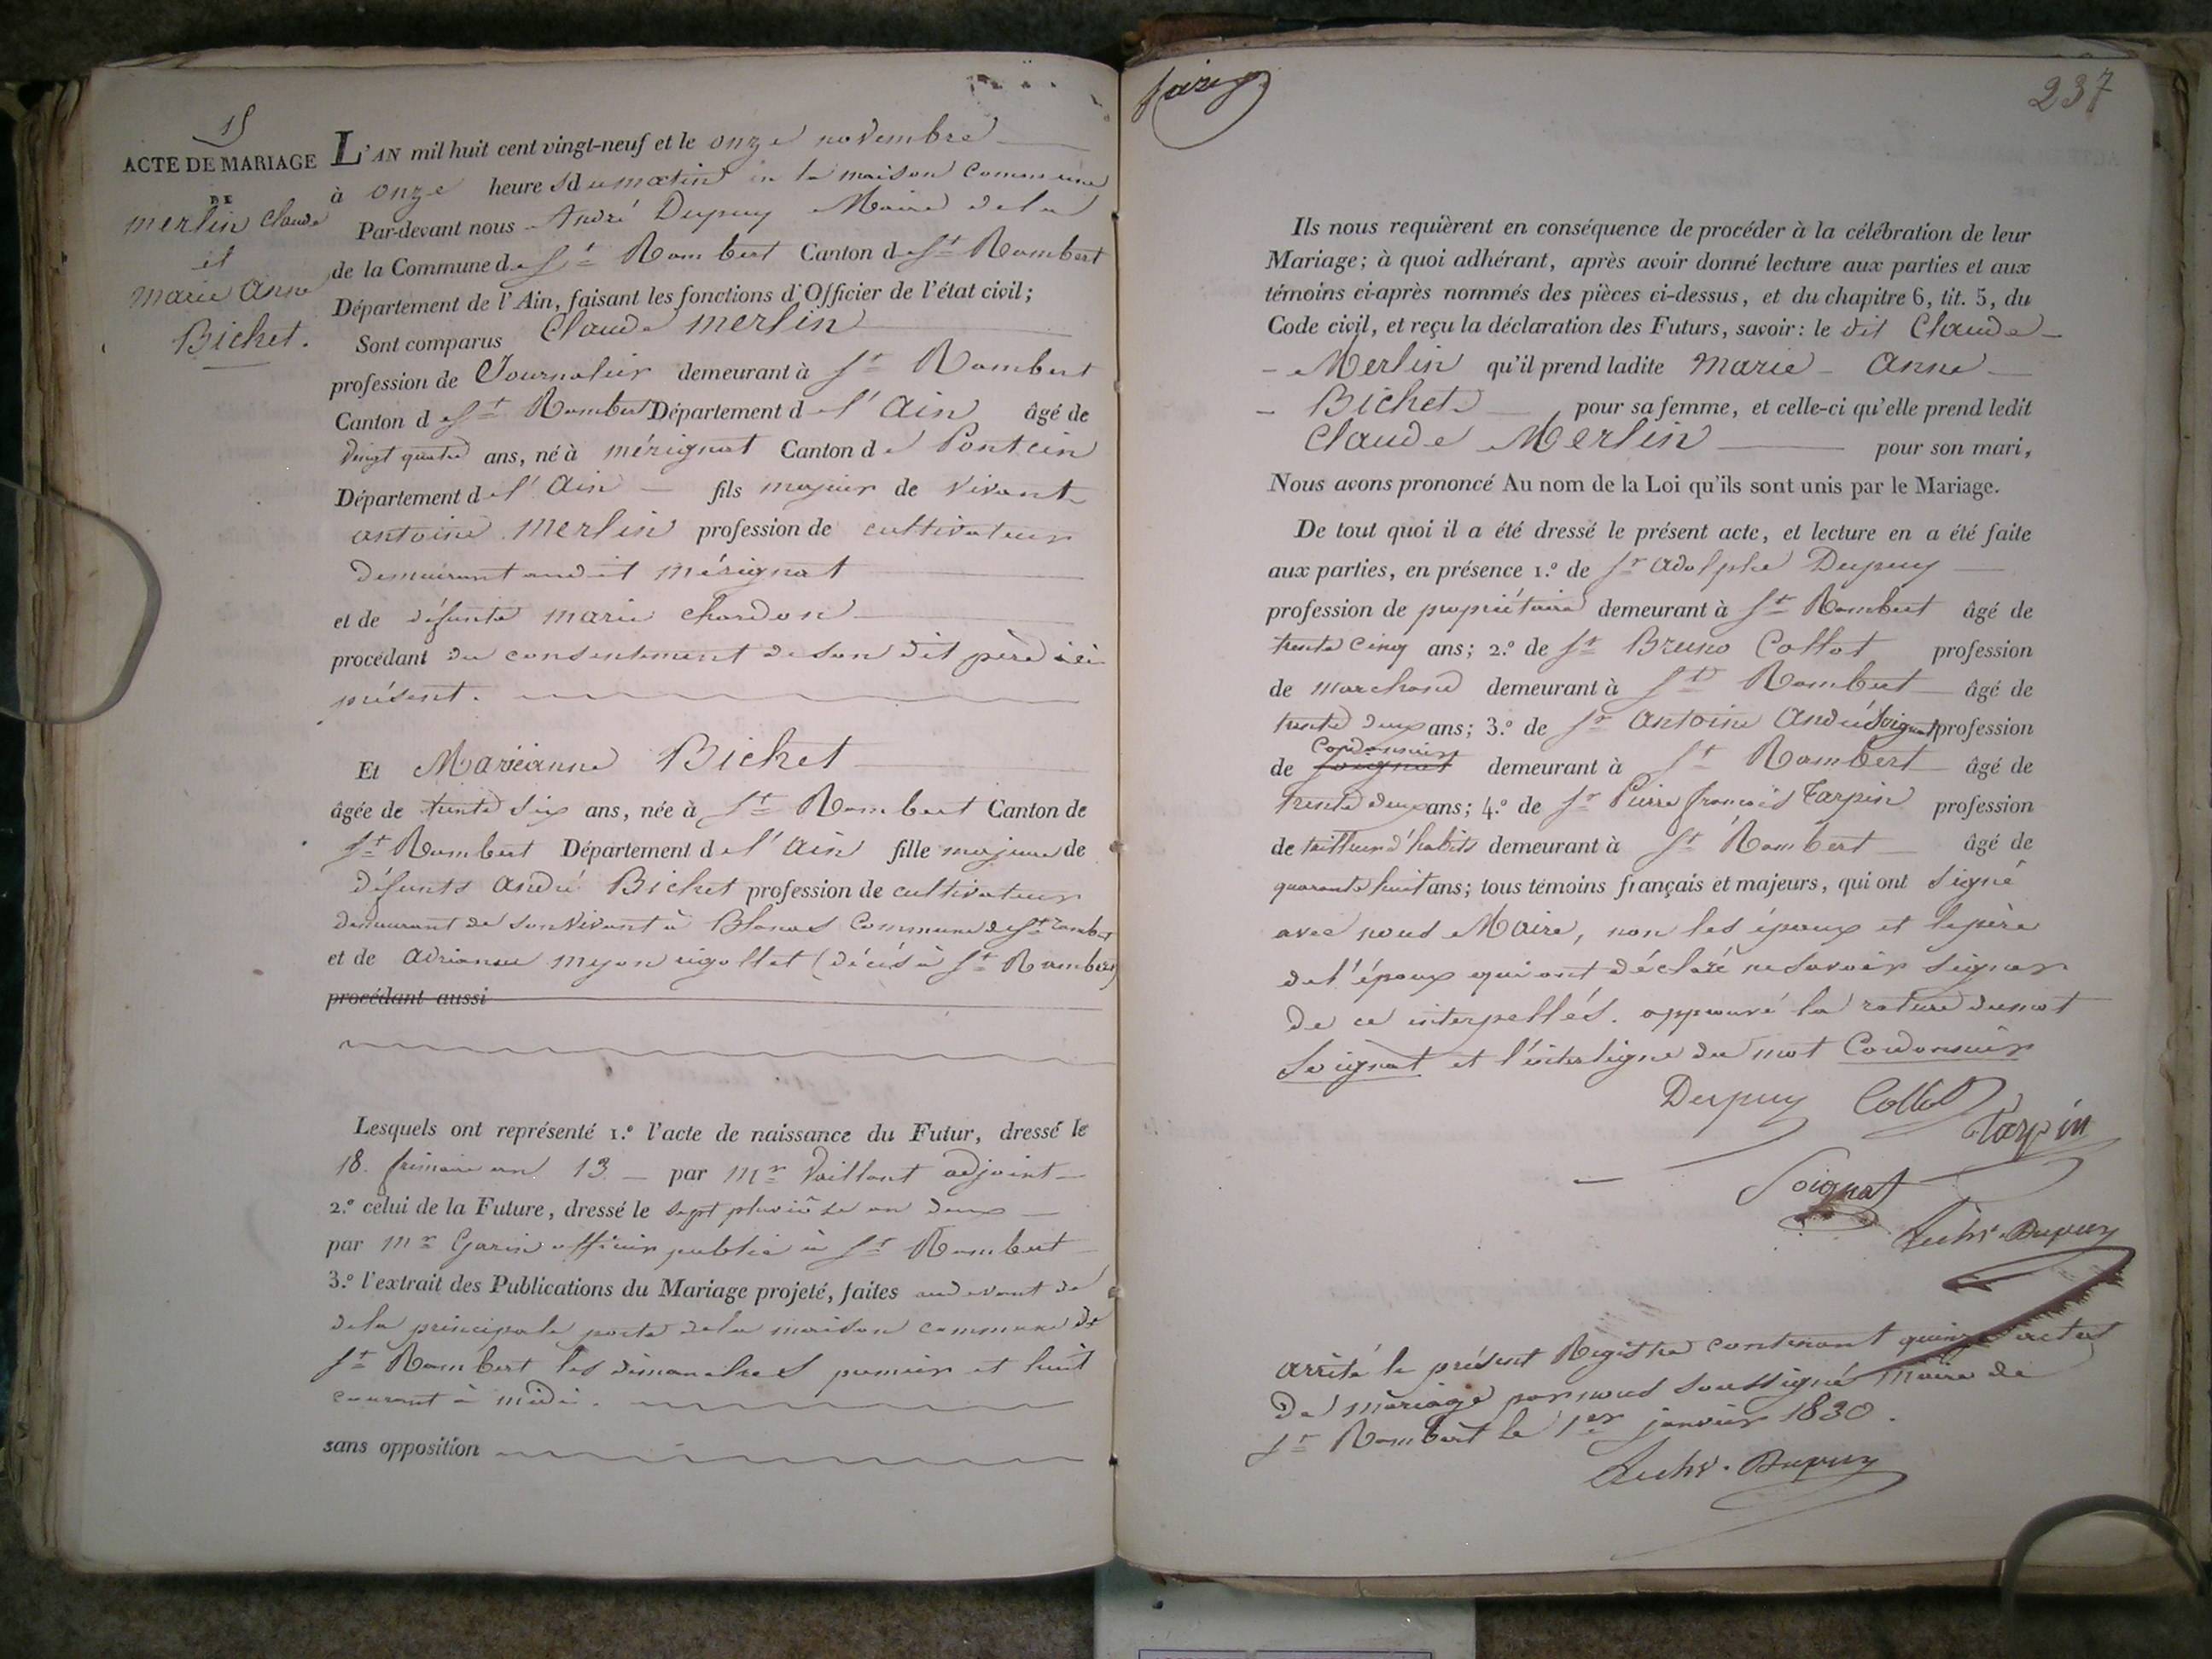 15
ACTE DE MARIAGE
DE
merlin Claude
et
marie anne
Bichet.
L'AN mil huit cent vingt-neuf et le onze novembre
à onze heures du matin en la maison Commune
Par-devant nous André Dupuy Maire de la
de la Commune de St Rambert Canton de St Rambert
Département de l'Ain, faisant les fonctions d'Officier de l'état civil;
Sont comparus Claude merlin
profession de Journalier demeurant à St Rambert
Canton de St Rambert Département de l'Ain âgé de
vingt quatre ans, né à mérignat Canton de Pontcin
Département de l'Ain fils majeur de vivant
antoine merlin profession de cultivateur
demeurant audit mérignat
et de défunte marie chardon
procédant du consentement de son dit père ici
présent.
Et Marieanne Bichet
âgée de trente six ans, née à St Rambert Canton de
St Rambert Département de l'Ain fille majeure de
défunts André Bichet profession de cultivateur
demeurant de son vivant à Blanas Commune de St rambert
et de adrianne myon rigollet (décédé à St Rambert)
procédant aussi
Lesquels ont représenté 1.º l'acte de naissance du Futur, dressé le
18. frimaire an 13 par mr Vaillant adjoint
2.º celui de la Future, dressé le sept pluviôse an deux
par mr Garin officier public à St Rambert
3.º l'extrait des Publications du Mariage projeté, faites audevant de
de la principale porte de la maison commune de
St Rambert les dimanches premier et huit
courant à midi.
sans opposition
237
Ils nous requièrent en conséquence de procéder à la célébration de leur
Mariage; à quoi adhérant, après avoir donné lecture aux parties et aux
témoins ci-après nommés des pièces ci-dessus, et du chapitre 6, tit. 5, du
Code civil, et reçu la déclaration des Futurs, savoir: le dit Claude
Merlin qu'il prend ladite marie anne
Bichet pour sa femme, et celle-ci qu'elle prend ledit
Claude Merlin pour son mari,
Nous avons prononcé Au nom de la Loi qu'ils sont unis par le Mariage.
De tout quoi il a été dressé le présent acte, et lecture en a été faite
aux parties, en présence 1.º de Sr adolphe Dupuy
profession de propriétaire demeurant à St Rambert âgé de
trente cinq ans; 2.º de Sr Bruno Collot profession
de marchand demeurant à St Rambert âgé de
trente deux ans; 3.º de Sr antoine André Soignat profession
de Soignat Cordonnier demeurant à St Rambert âgé de
trente deux ans; 4.º de Sr Pierre françois Tarpin profession
de tailleur d'habits demeurant à St Rambert âgé de
quarante huit ans; tous témoins français et majeurs, qui ont signé
avec nous Maire, non les époux et le père
de l'époux qui ont déclaré ne savoir signer
de ce interpellés. approuvé la rature du mot
Soignat et l'interligne du mot Cordonnier
Dupuy Collot
Tarpin
Soignat
Dupuy
arrêté le présent Registre contenant quinze actes
de mariage par nous soussigné maire de
St Rambert le 1er janvier 1830.
Dupuy